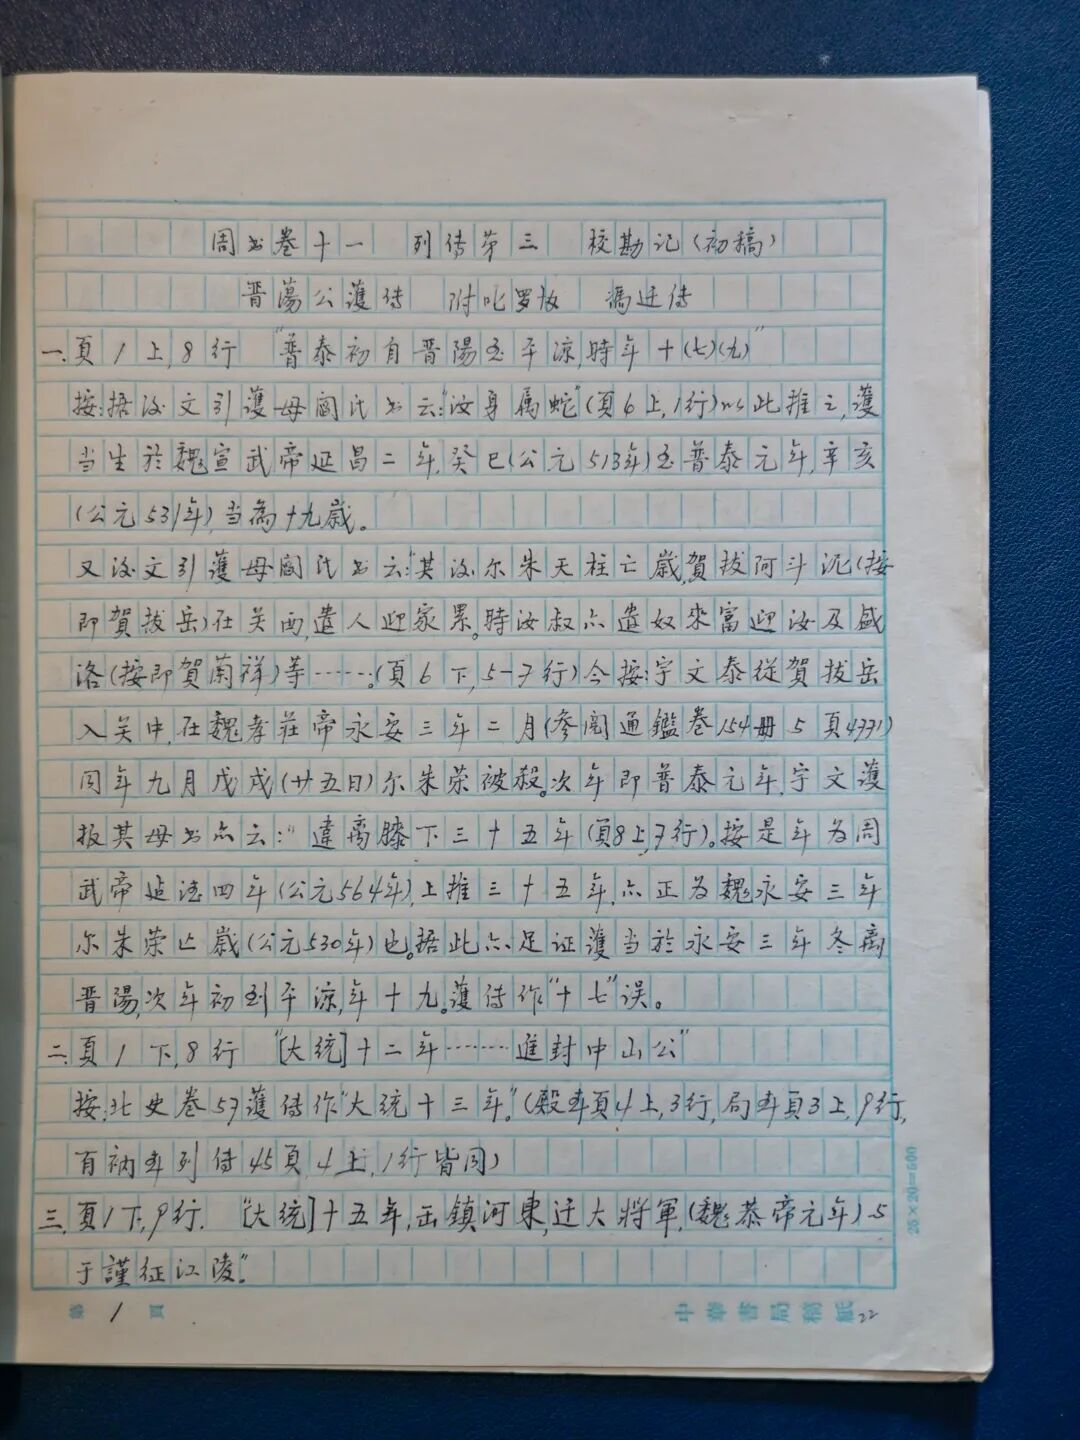 周书卷十一 列传第三 校勘记(初稿)
晋蕩公護传 附叱罗协 馮迁传
一、頁1上,8行 "普泰初自晋陽至平涼,時年十(七)(九)"
按:据後文引護母閻氏书云:"汝身属蛇"(頁6上,1行)以此推之,護
当生於魏宣武帝延昌二年,癸巳(公元513年)至普泰元年,辛亥
(公元531年),当為十九歲。
又後文引護母閻氏书云:"其後尔朱天柱亡歲,賀拔阿斗泥(按
即賀拔岳)在关西,遣人迎家累。時汝叔亦遣奴來富迎汝及盛
洛(按即賀蘭祥)等……。(頁6下,5-7行)今按:宇文泰從賀拔岳
入关中,在魏孝莊帝永安三年二月(參閱通鑑卷154册5頁4771)
同年九月戊戌(廿五日)尔朱荣被殺。次年即普泰元年,宇文護
报其母书亦云:"違离膝下三十五年(頁8上,7行)。按是年为周
武帝保定四年(公元564年),上推三十五年,亦正为魏永安三年
尔朱荣亡歲(公元530年)也。据此亦足证護当於永安三年冬离
晋陽,次年初到平涼,年十九。護传作"十七"误。
二、頁1下,8行 "[大统]十二年……進封中山公"
按:北史卷57護传作"大统十三年。"(殿本頁4上,3行,局本頁3上,9行,
百衲本列传45頁,4上,1行皆同)
三、頁1下,9行. "[大统]十五年,出鎮河東,迁大將軍,(魏恭帝元年)与
于謹征江陵"。
第1頁
中華書局稿紙
22
25×20=500